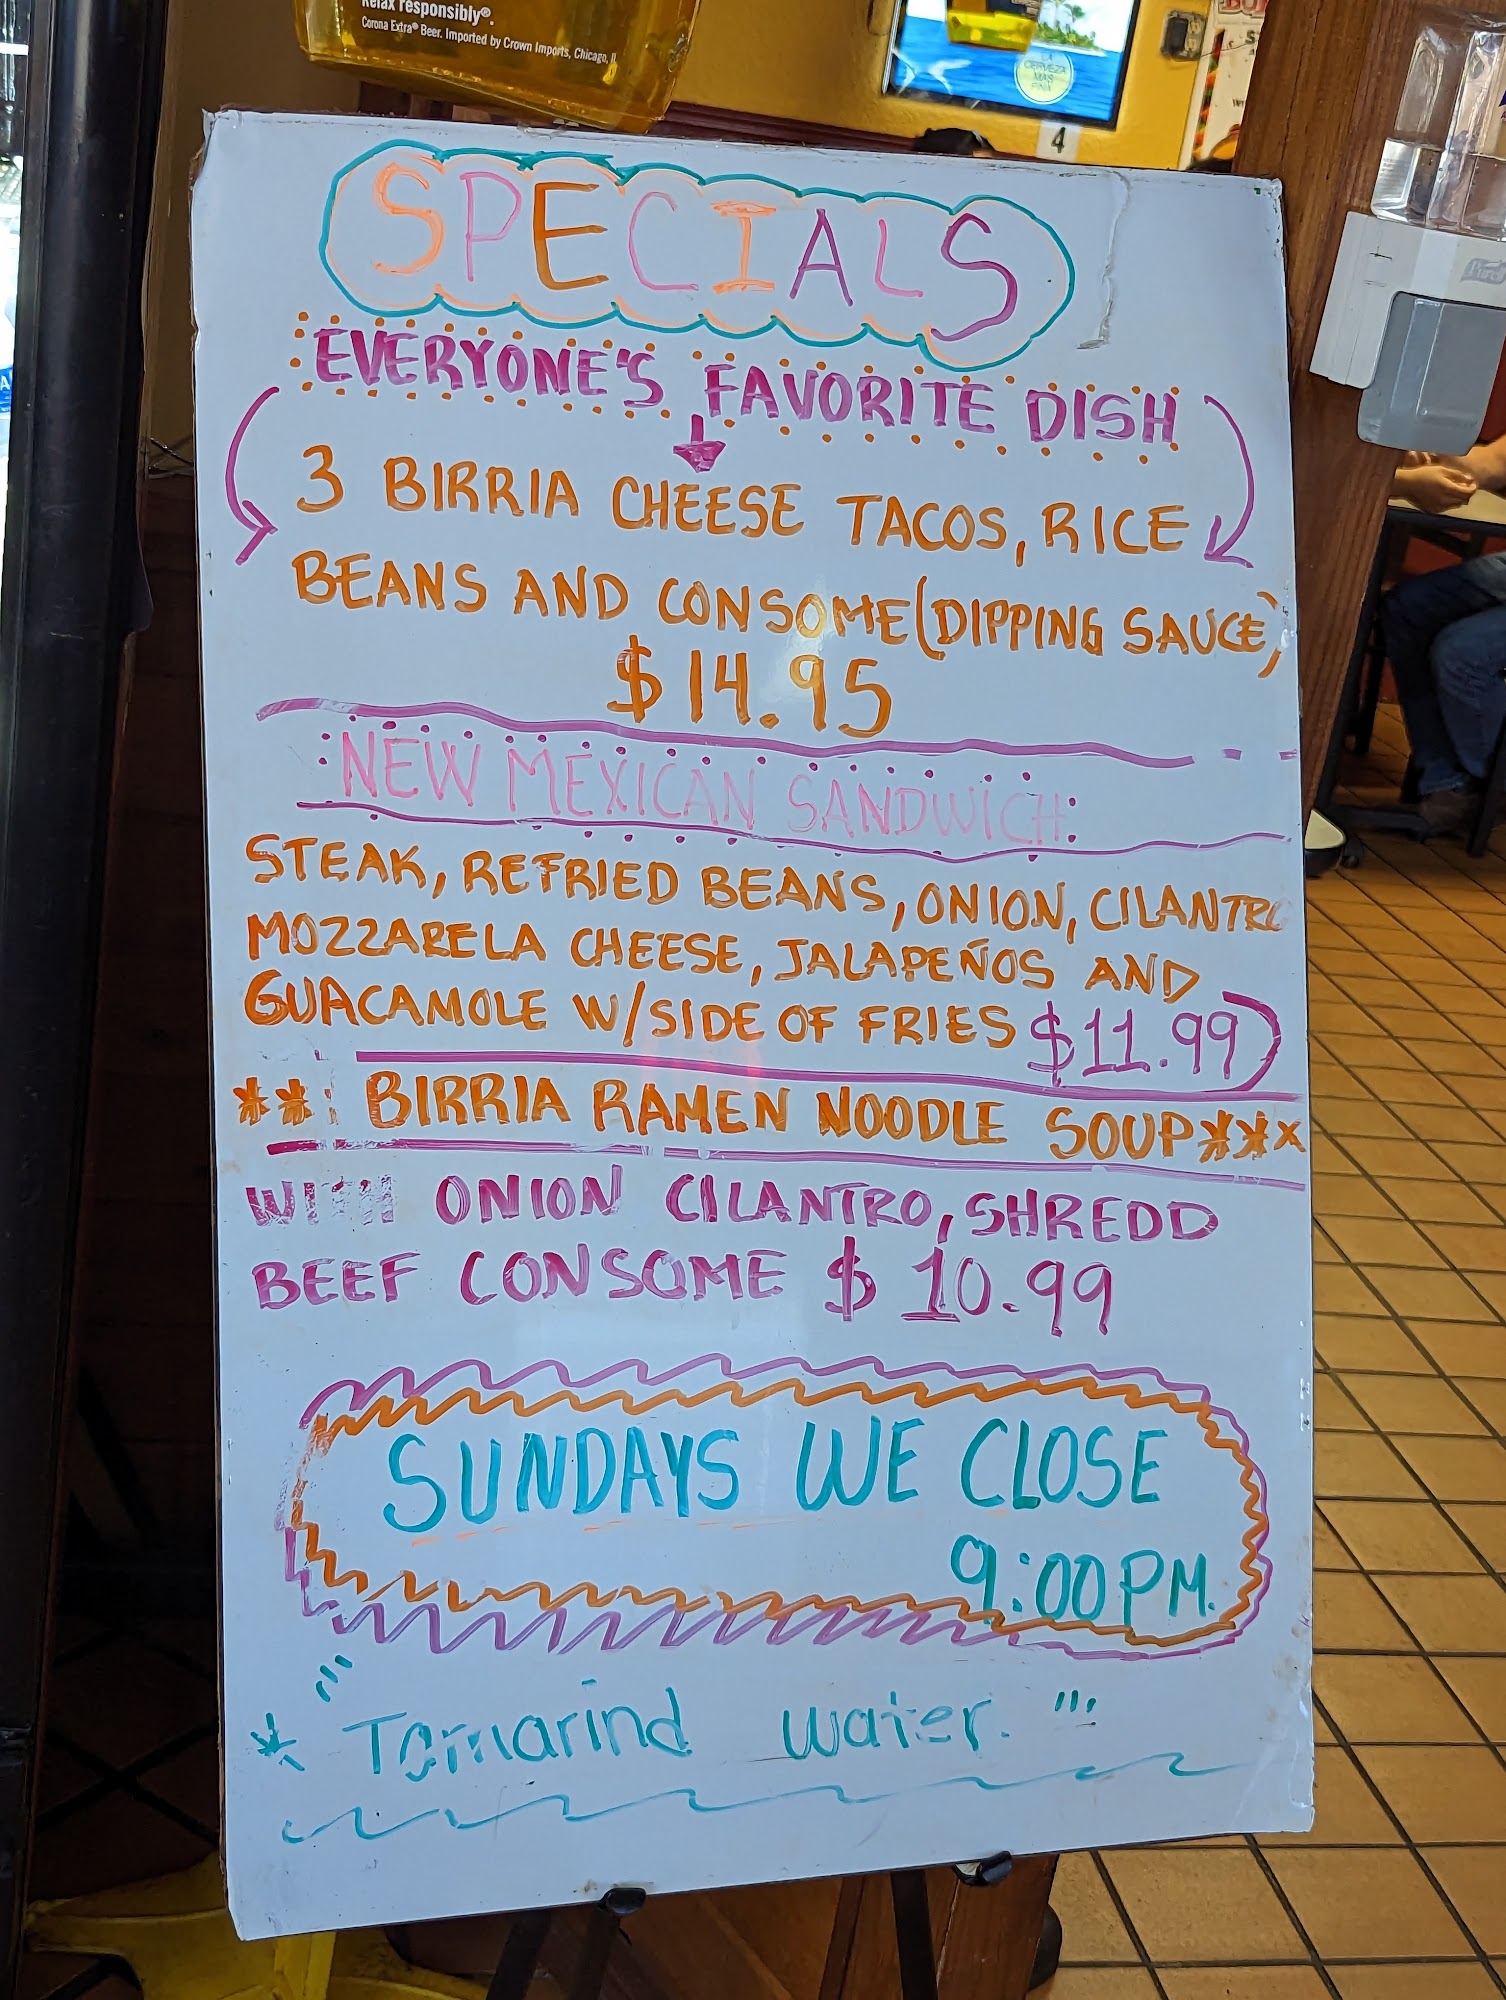 Relax responsibly®.
Corona Extra® Beer. Imported by Crown Imports, Chicago, IL
LA
CERVEZA
MAS
FINA
4
SPECIALS
EVERYONE'S FAVORITE DISH
3 BIRRIA CHEESE TACOS, RICE
BEANS AND CONSOME (DIPPING SAUCE)
$14.95
NEW MEXICAN SANDWICH:
STEAK, REFRIED BEANS, ONION, CILANTRO
MOZZARELA CHEESE, JALAPEÑOS AND
GUACAMOLE W/SIDE OF FRIES $11.99
** BIRRIA RAMEN NOODLE SOUP***
WITH ONION CILANTRO, SHREDD
BEEF CONSOME $10.99
SUNDAYS WE CLOSE
9:00PM.
* "Tamarind water."